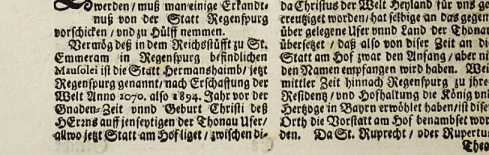 werden / muß man einige Erkandt-
nuß von der Statt Regenspurg
vorschicken / vnd zu Hülff nemmen.
Vermög deß in dem Reichsstifft zu St.
Emmeram in Regenspurg befindlichen
Mausolei ist die Statt Hermansheimb / jetzt
Regenspurg genannt / nach Erschaffung der
Welt Anno 2070. also 1894. Jahr vor der
Gnaden-Zeit vnnd Geburt Christi deß
HErrns auff jenseytigen der Thonau Ufer /
allwo jetzt Statt am Hof liget / zwischen di-
da Christus der Welt Heyland für vns ge-
creutziget worden / hat selbige an das gegen
über gelegene Ufer vnnd Land der Thonau
übersetzet / daß also von diser Zeit an die
Statt am Hof zwar den Anfang / aber ni
den Namen empfangen wird haben. Wei
mittler Zeit hinnach Regenspurg zu jhre
Residentz / vnd Hofhaltung die König vn
Hertzoge in Bayrn erwöhlet haben / ist dise
Orth die Vorstatt am Hof benambset wor
den. Da St. Ruprecht / oder Rupertu
Theo